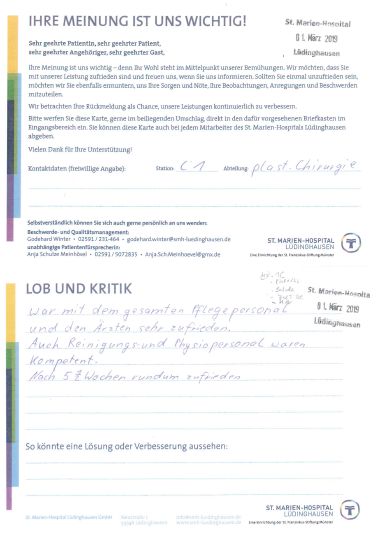 IHRE MEINUNG IST UNS WICHTIG!
St. Marien-Hospital
0 1. März 2019
Lüdinghausen
Sehr geehrte Patientin, sehr geehrter Patient,
sehr geehrter Angehöriger, sehr geehrter Gast,
Ihre Meinung ist uns wichtig – denn Ihr Wohl steht im Mittelpunkt unserer Bemühungen. Wir möchten, dass Sie
mit unserer Leistung zufrieden sind und freuen uns, wenn Sie uns informieren. Sollten Sie einmal unzufrieden sein,
möchten wir Sie ebenfalls ermuntern, uns Ihre Sorgen und Nöte, Ihre Beobachtungen, Anregungen und Beschwerden
mitzuteilen.
Wir betrachten Ihre Rückmeldung als Chance, unsere Leistungen kontinuierlich zu verbessern.
Bitte werfen Sie diese Karte, gerne im beiliegenden Umschlag, direkt in den dafür vorgesehenen Briefkasten im
Eingangsbereich ein. Sie können diese Karte auch bei jedem Mitarbeiter des St. Marien-Hospitals Lüdinghausen
abgeben.
Vielen Dank für Ihre Unterstützung!
Kontaktdaten (freiwillige Angabe): Station: C1 Abteilung: plast. Chirurgie
Selbstverständlich können Sie sich auch gerne persönlich an uns wenden:
Beschwerde- und Qualitätsmanagement:
Godehard Winter • 02591 / 231-464 • godehard.winter@smh-luedinghausen.de
unabhängige Patientenfürsprecherin:
Anja Schulze Meinhövel • 02591 / 5072835 • Anja.Sch.Meinhoevel@gmx.de
ST. MARIEN-HOSPITAL
LÜDINGHAUSEN
Eine Einrichtung der St. Franziskus-Stiftung Münster
St. Marien-Hospital
0 1. März 2019
Lüdinghausen
LOB UND KRITIK
War mit dem gesamten Pflegepersonal
und den Ärzten sehr zufrieden.
Auch Reinigungs- und Physiopersonal waren
kompetent.
Nach 5 Wochen rundum zufrieden
So könnte eine Lösung oder Verbesserung aussehen:
St. Marien-Hospital Lüdinghausen GmbH
59348 Lüdinghausen
ST. MARIEN-HOSPITAL
LÜDINGHAUSEN
Eine Einrichtung der St. Franziskus-Stiftung Münster